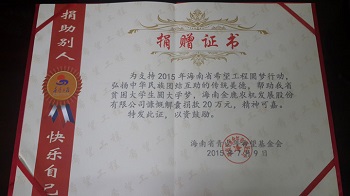 捐助别人
快乐自己
捐赠证书
为支持2015年海南省希望工程圆梦行动,
弘扬中华民族团结互助的传统美德,帮助我省
贫困大学生圆大学梦,海南金鹿农机发展股份
有限公司慷慨解囊捐款20万元,精神可嘉。
特发此证,以资鼓励。
海南省青少年希望基金会
2015年7月9日